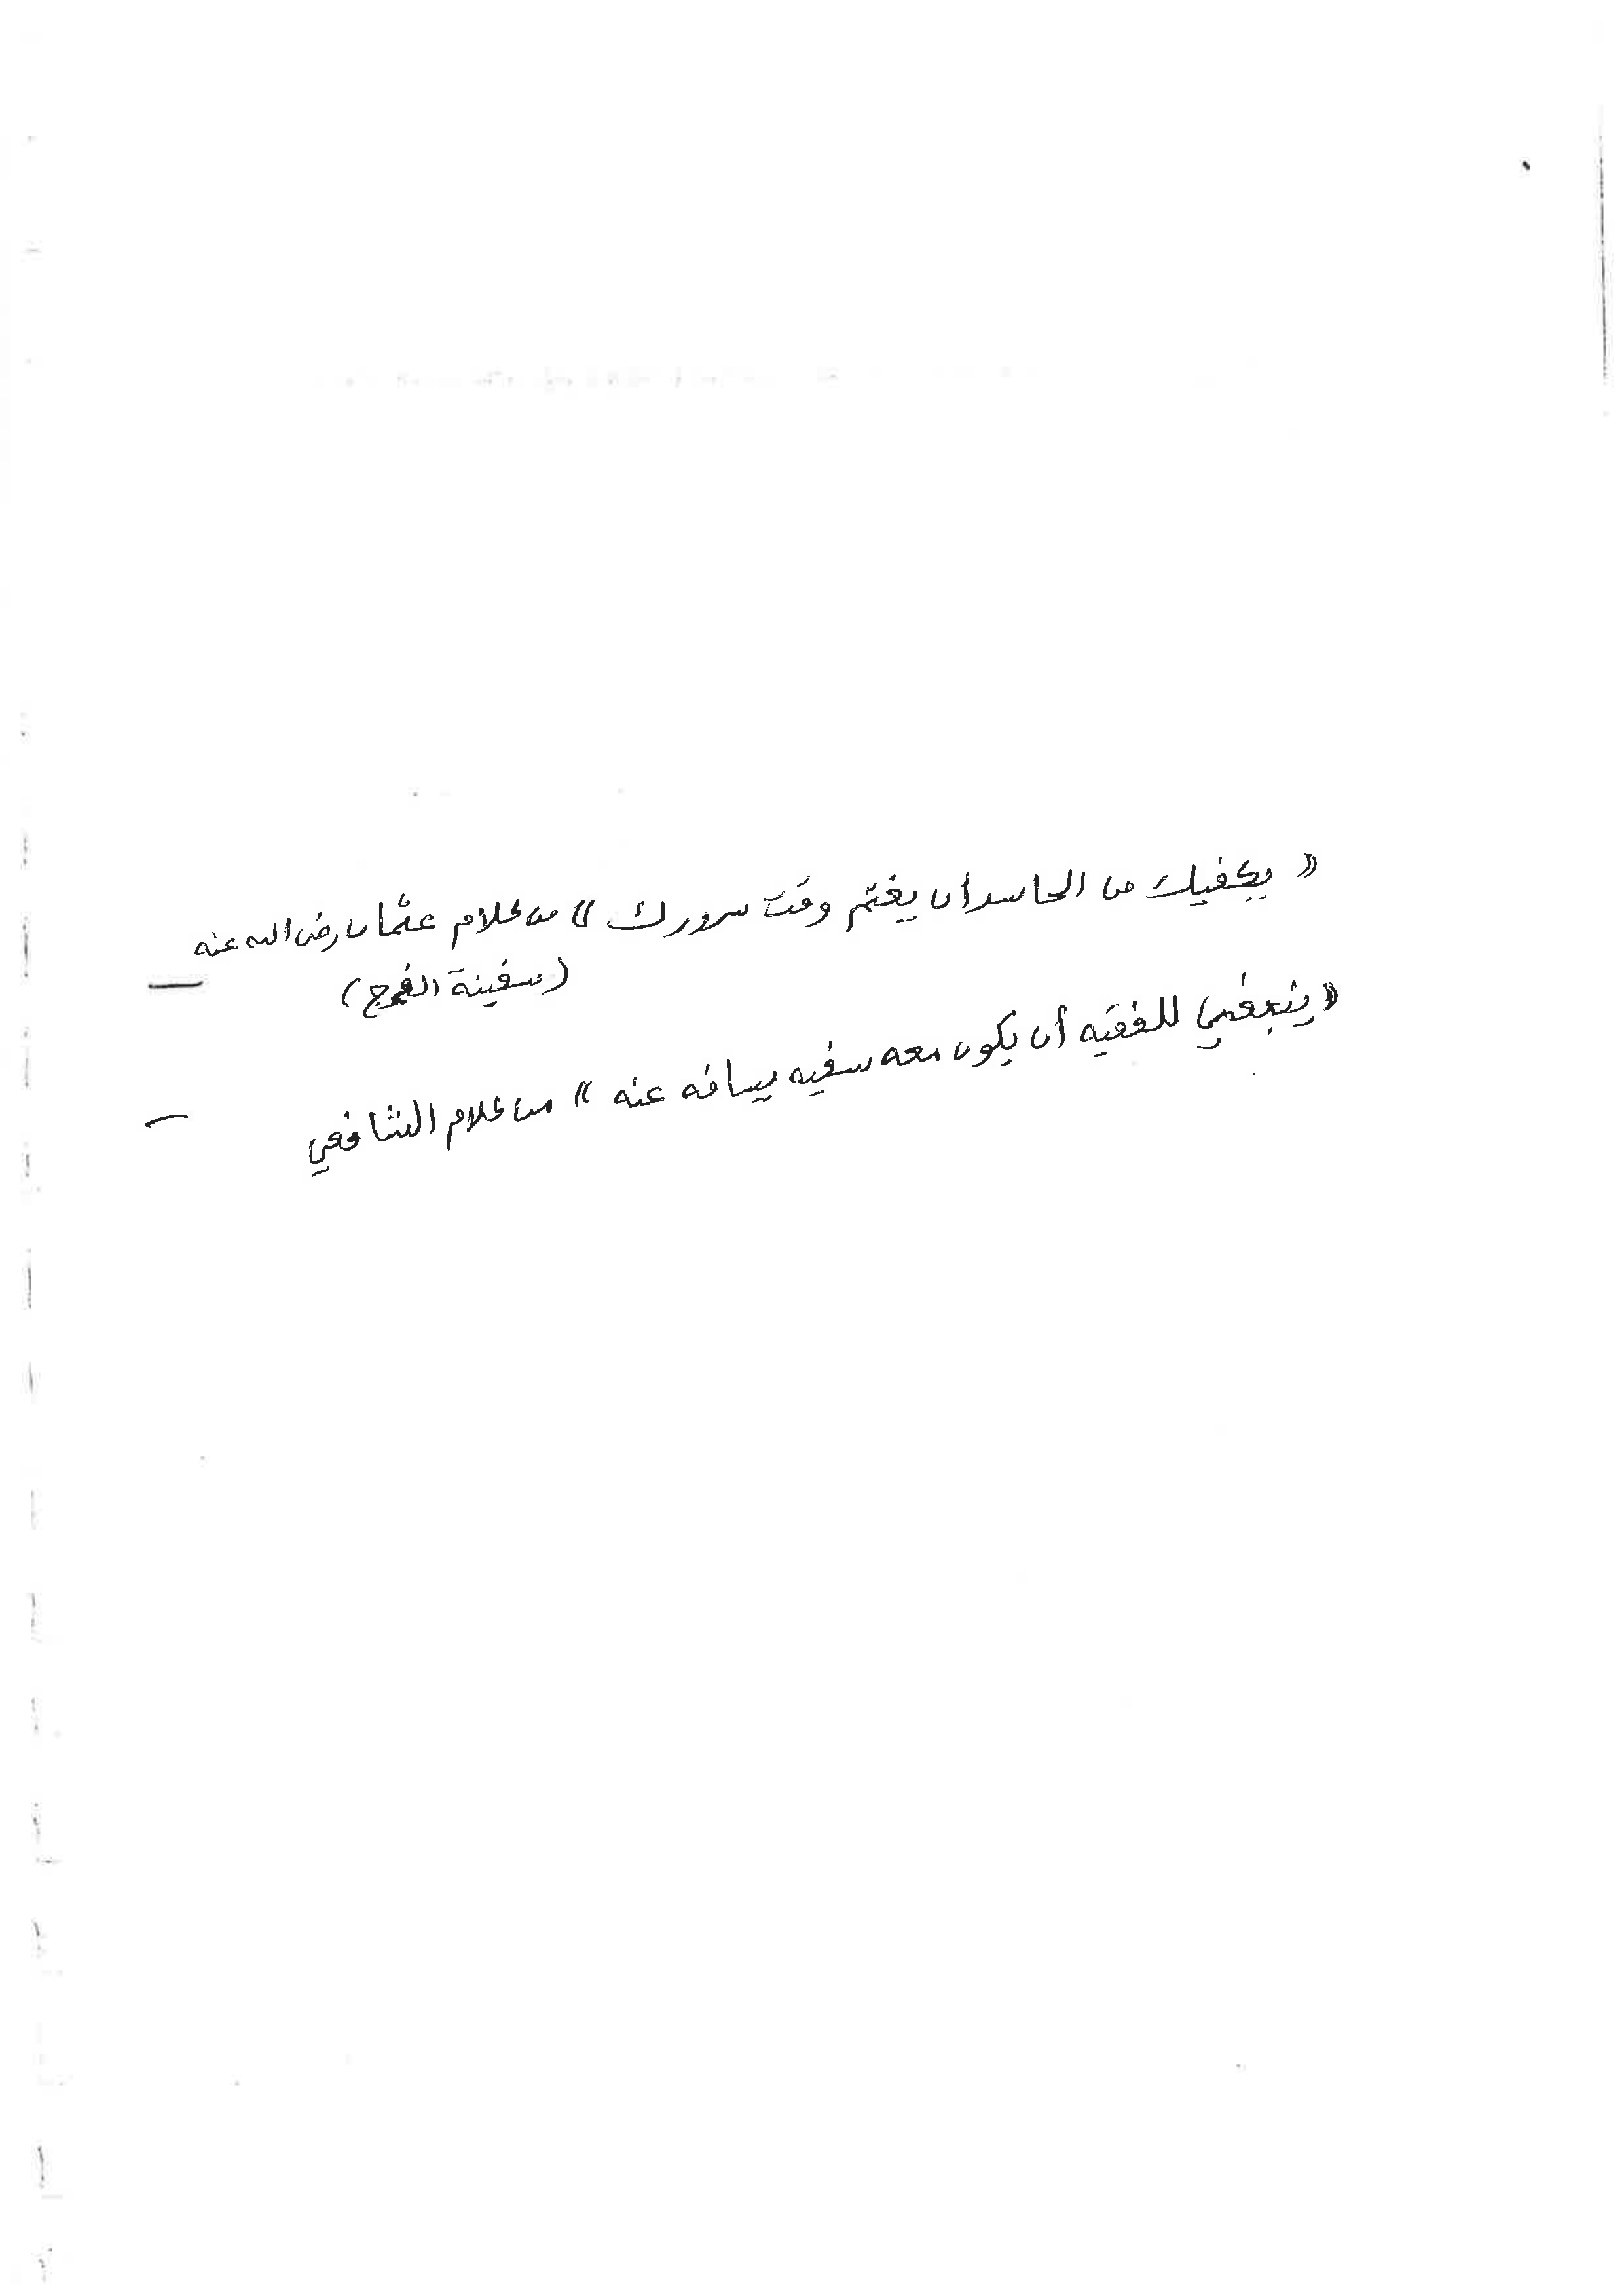 « يكفيك من الحاسد أن يغتم وقت سرورك » من كلام عثمان رضي الله عنه
(سفينة الفرج)
« ينبغي للفقيه أن يكون معه سفيه يسافه عنه » من كلام الشافعي